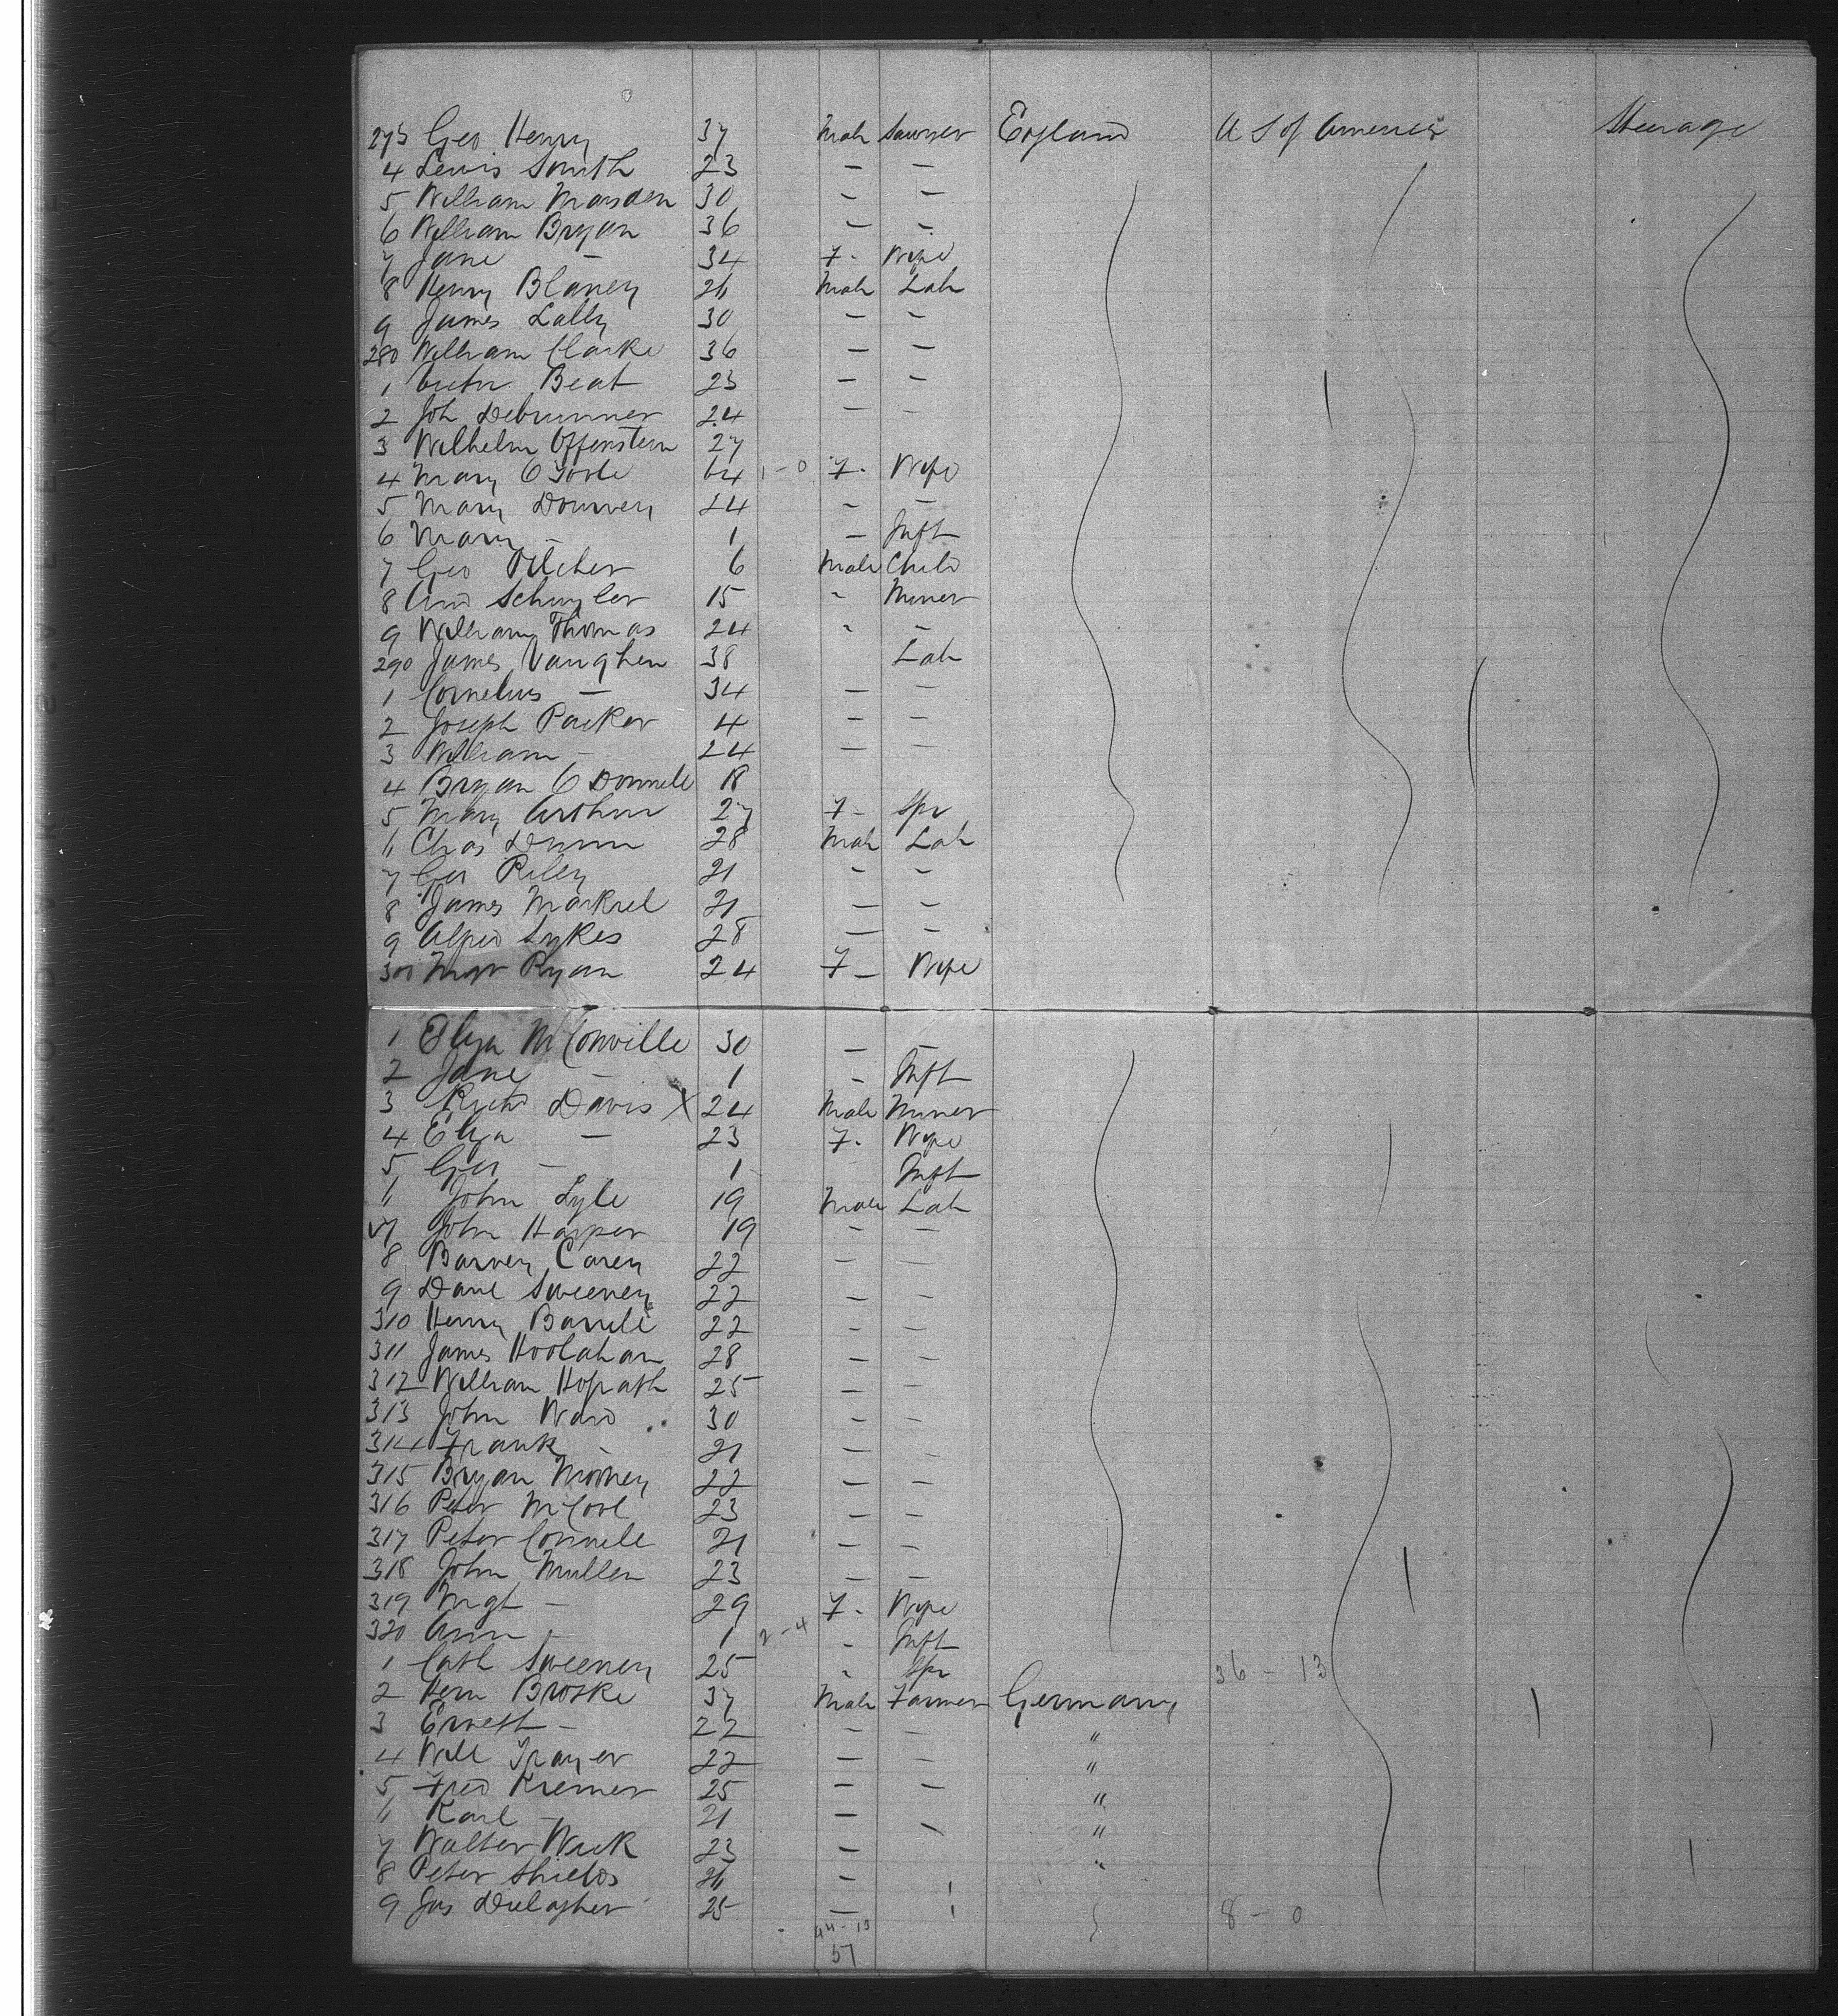 273 Geo Henry 37 Male Sawyer England U S of America Steerage
4 Lewis Smith 23 — —
5 William Marsden 30 - —
6 William Bryan 36 — -
7 Jane — 34 F. Wife
8 Henry Blaney 26 Male Lab
9 James Lally 30 — -
280 William Clarke 36 — —
1 Victor Beat 23 — -
2 Joh Debrunner 24 — -
3 Wilhelm Offenstein 27
4 Mary O Toole 64 1-0 F. Wife
5 Mary 24 - —
6 Mary - 1 — Inft
7 Geo Pilcher 6 Male Child
8 Schuyler 15 - Miner
9 William Thomas 24 - —
290 James Vaughen 38 Lab
1 Cornelius — 34 — —
2 Joseph Parker 4 — —
3 William - 24 — —
4 Bryan O Donnell 18
5 Mary Arthur 27 F- Spr
6 Chas Dunn 28 Male Lab
7 Geo Riley 21 - -
8 James Markrel 21 — -
9 Alfred Sykes 28 — -
300 Mgt Ryan 24 F- Wife
1 Eliza McConville 30 — —
2 Jane — 1 - Inft
3 Richd Davis X 24 Male Miner
4 Eliza — 23 F. Wife
5 Geo — 1 Inft
6 John Lyle 19 Male Lab
7 John Harper 19 - —
8 Barney Carey 22 — —
9 Danl Sweeney 22 — -
310 Henry 22 - —
311 James Hoolahan 28 — —
312 William 25 — -
313 John Ward 30 - -
314 Frank - 21 — -
315 Bryan Mooney 22 — —
316 Peter McCool 23 — —
317 Peter Connell 21 — -
318 John Mullen 23 — —
319 Mgt - 29 F. Wife
320 Ann - 1 2-4 - Inft
1 Cath Sweeney 25 - Spr 36 - 13
2 Herm Broske 37 Male Farmer Germany
3 Ernest - 22 — — "
4 Will 22 — — "
5 Fred Kremer 25 — — "
6 Karl - 21 — "
7 Walter Wick 23 — "
8 Peter Shields 26 -
9 Jas 25 — 8 - 0
44-13
57